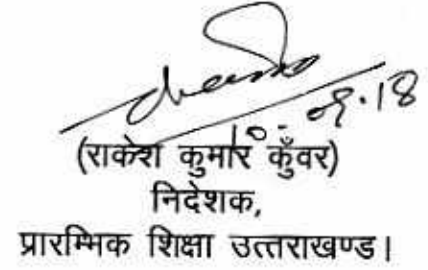 10.09.18
(राकेश कुमार कुँवर)
निदेशक,
प्रारम्भिक शिक्षा उत्तराखण्ड।